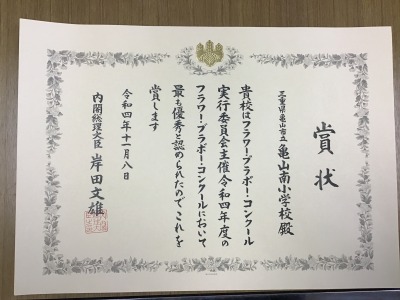 賞状
三重県亀山市立亀山南小学校殿
貴校はフラワー・ブラボー・コンクール
実行委員会主催令和四年度の
フラワー・ブラボー・コンクールにおいて
最も優秀と認められたのでこれを
賞します
令和四年十一月八日
内閣総理大臣 岸田文雄